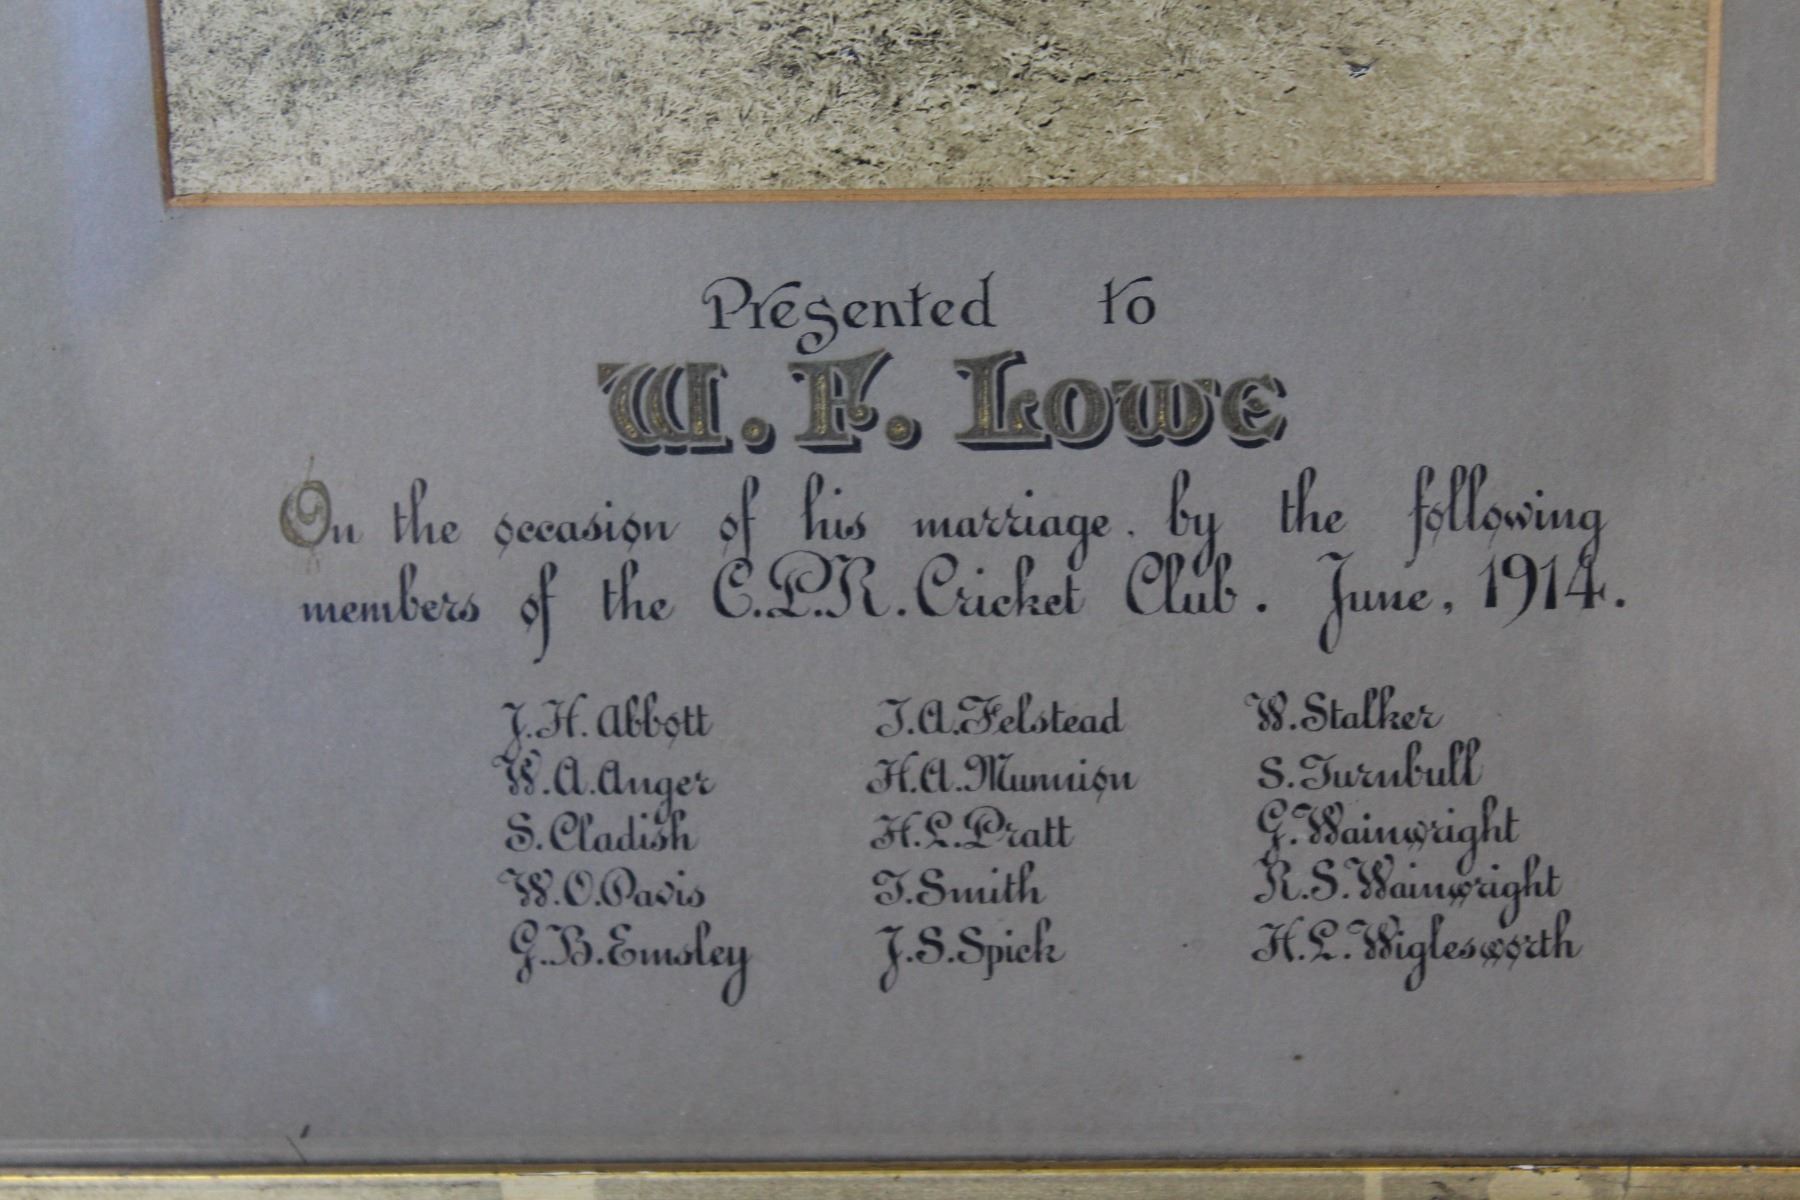 Presented to
W. F. Lowe
On the occasion of his marriage. by the following
members of the C.P.R. Cricket Club. June, 1914.
J. H. Abbott
W. A. Anger
S. Cladish
W. O. Davis
G. B. Emsley
T. A. Felstead
H. A. Munnion
H. L. Pratt
T. Smith
J. S. Spick
W. Stalker
S. Turnbull
G. Wainwright
R. S. Wainwright
H. L. Wiglesworth